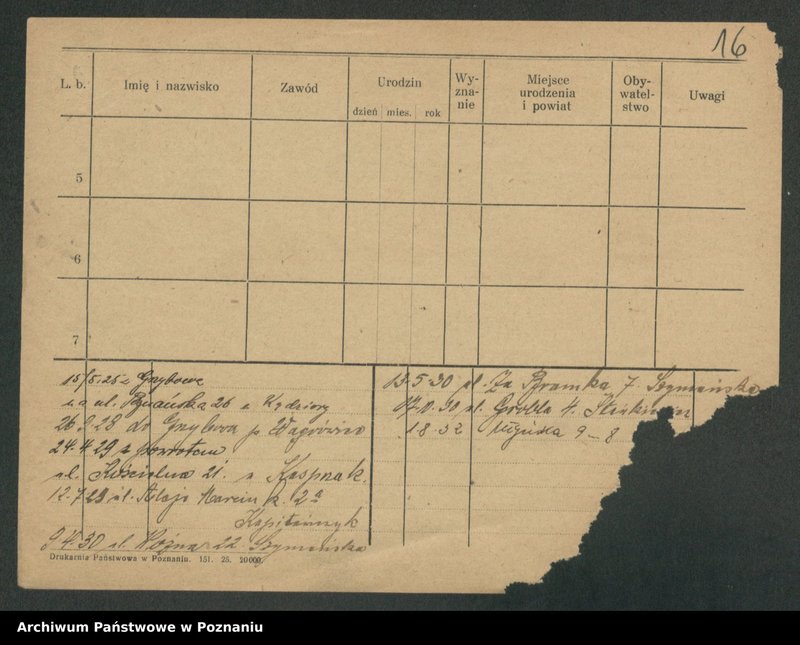 16
L. b. Imię i nazwisko Zawód Urodzin dzień mies. rok Wy-zna-nie Miejsce urodzenia i powiat Oby-watel-stwo Uwagi
5
6
7
15/5.25 z Grzybowa
na ul. 26 u Kędziory
26.2.28 do Grzybowa p. Wągrówiec
24.4.29 z powrotem
ul. Kościelna 21. u Kaspzak.
12.7.29 ul. Marcin k. 2a
Kapitańczyk
9 4.30 ul. Woźna 22 Szymańska
13.5.30 pl. Za Bramką 7. Szymańska
17.0.30 ul. Grobla 4.
1.8.32 9-8
Drukarnia Państwowa w Poznaniu. 151. 25. 20000.
Archiwum Państwowe w Poznaniu